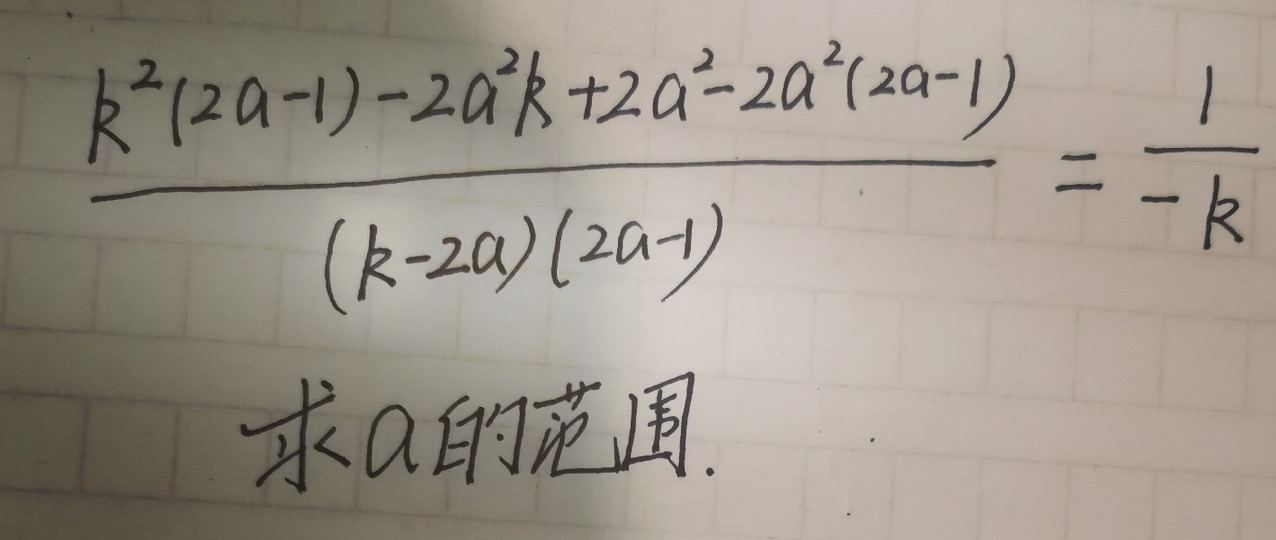 k²(2a-1)-2a²k+2a²-2a²(2a-1)
(k-2a)(2a-1)
=
1
-k
求a的范围.